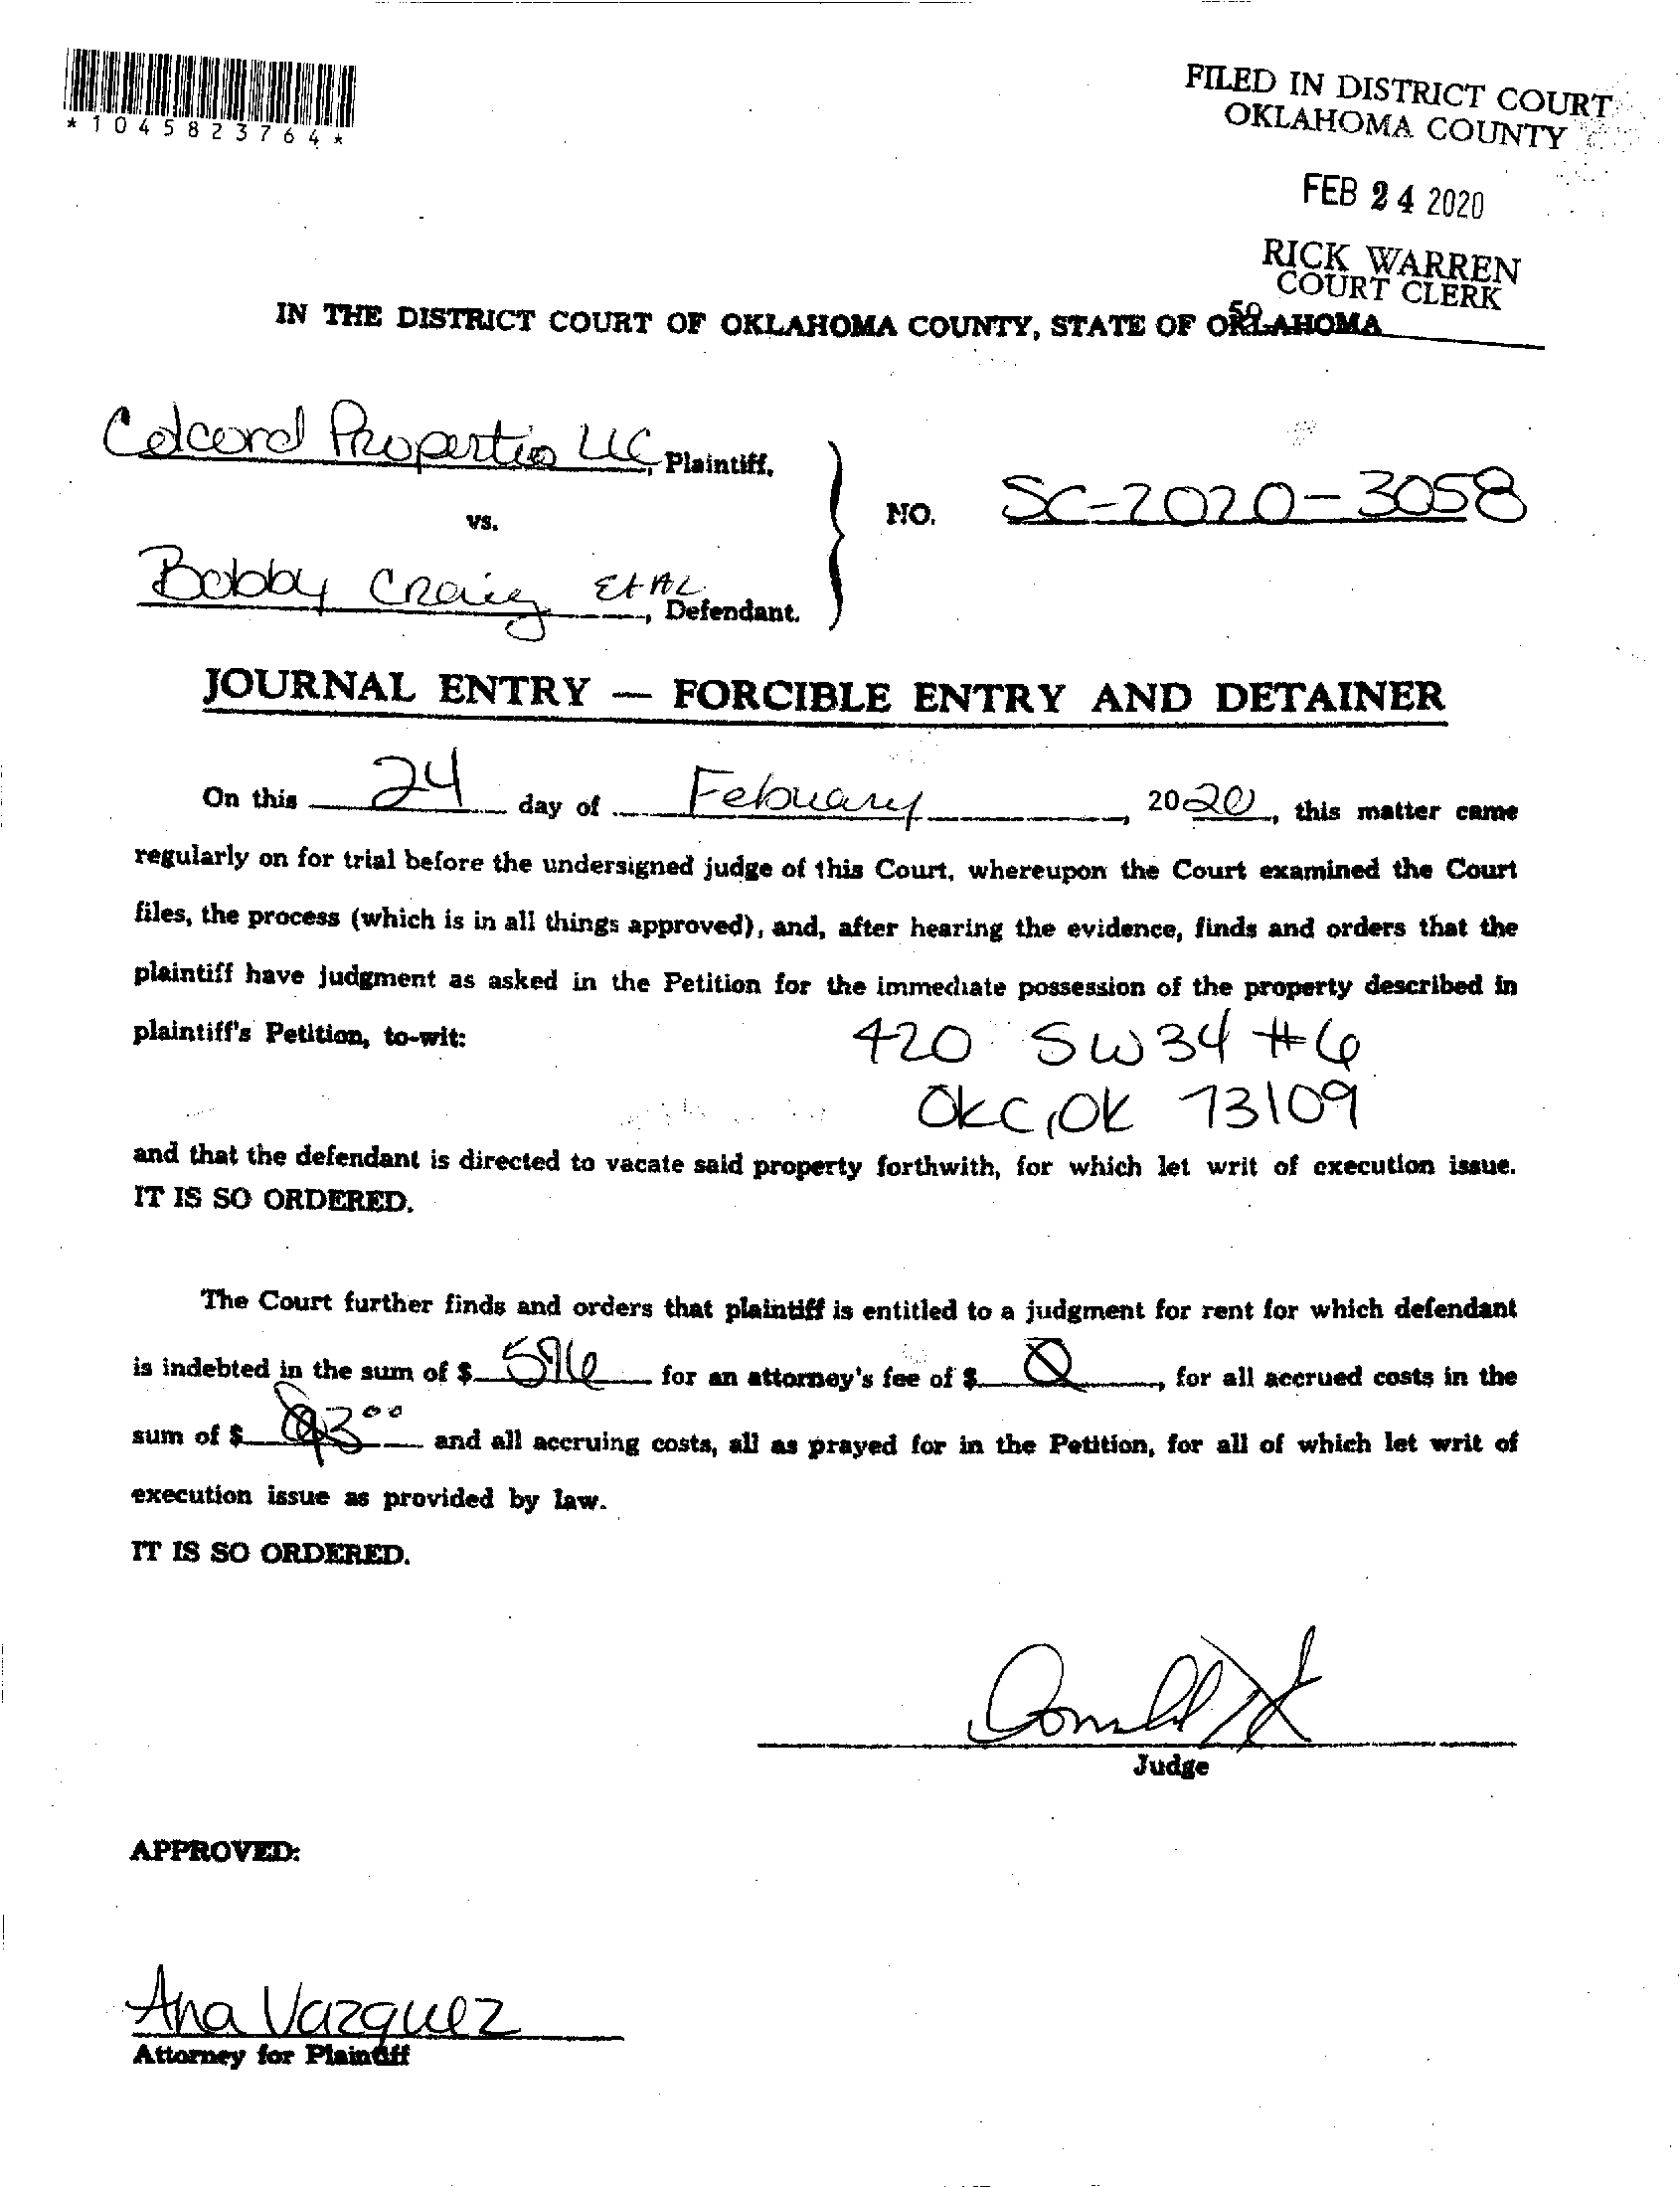 *1045823764*
FILED IN DISTRICT COURT
OKLAHOMA COUNTY
FEB 24 2020
RICK WARREN
COURT CLERK
IN THE DISTRICT COURT OF OKLAHOMA COUNTY, STATE OF OKLAHOMA
Colcord Properties LLC, Plaintiff,
vs.
NO. SC-2020-3058
Bobby Craig Et AL, Defendant.
JOURNAL ENTRY — FORCIBLE ENTRY AND DETAINER
On this 24 day of Febuary, 2020, this matter came
regularly on for trial before the undersigned judge of this Court, whereupon the Court examined the Court
files, the process (which is in all things approved), and, after hearing the evidence, finds and orders that the
plaintiff have judgment as asked in the Petition for the immediate possession of the property described in
plaintiff's Petition, to-wit: 420 SW 34 #6
OKC, OK 73109
and that the defendant is directed to vacate said property forthwith, for which let writ of execution issue.
IT IS SO ORDERED.
The Court further finds and orders that plaintiff is entitled to a judgment for rent for which defendant
is indebted in the sum of $ 596 for an attorney's fee of $ 0, for all accrued costs in the
sum of $ and all accruing costs, all as prayed for in the Petition, for all of which let writ of
execution issue as provided by law.
IT IS SO ORDERED.
Judge
APPROVED:
Ana Vazquez
Attorney for Plaintiff